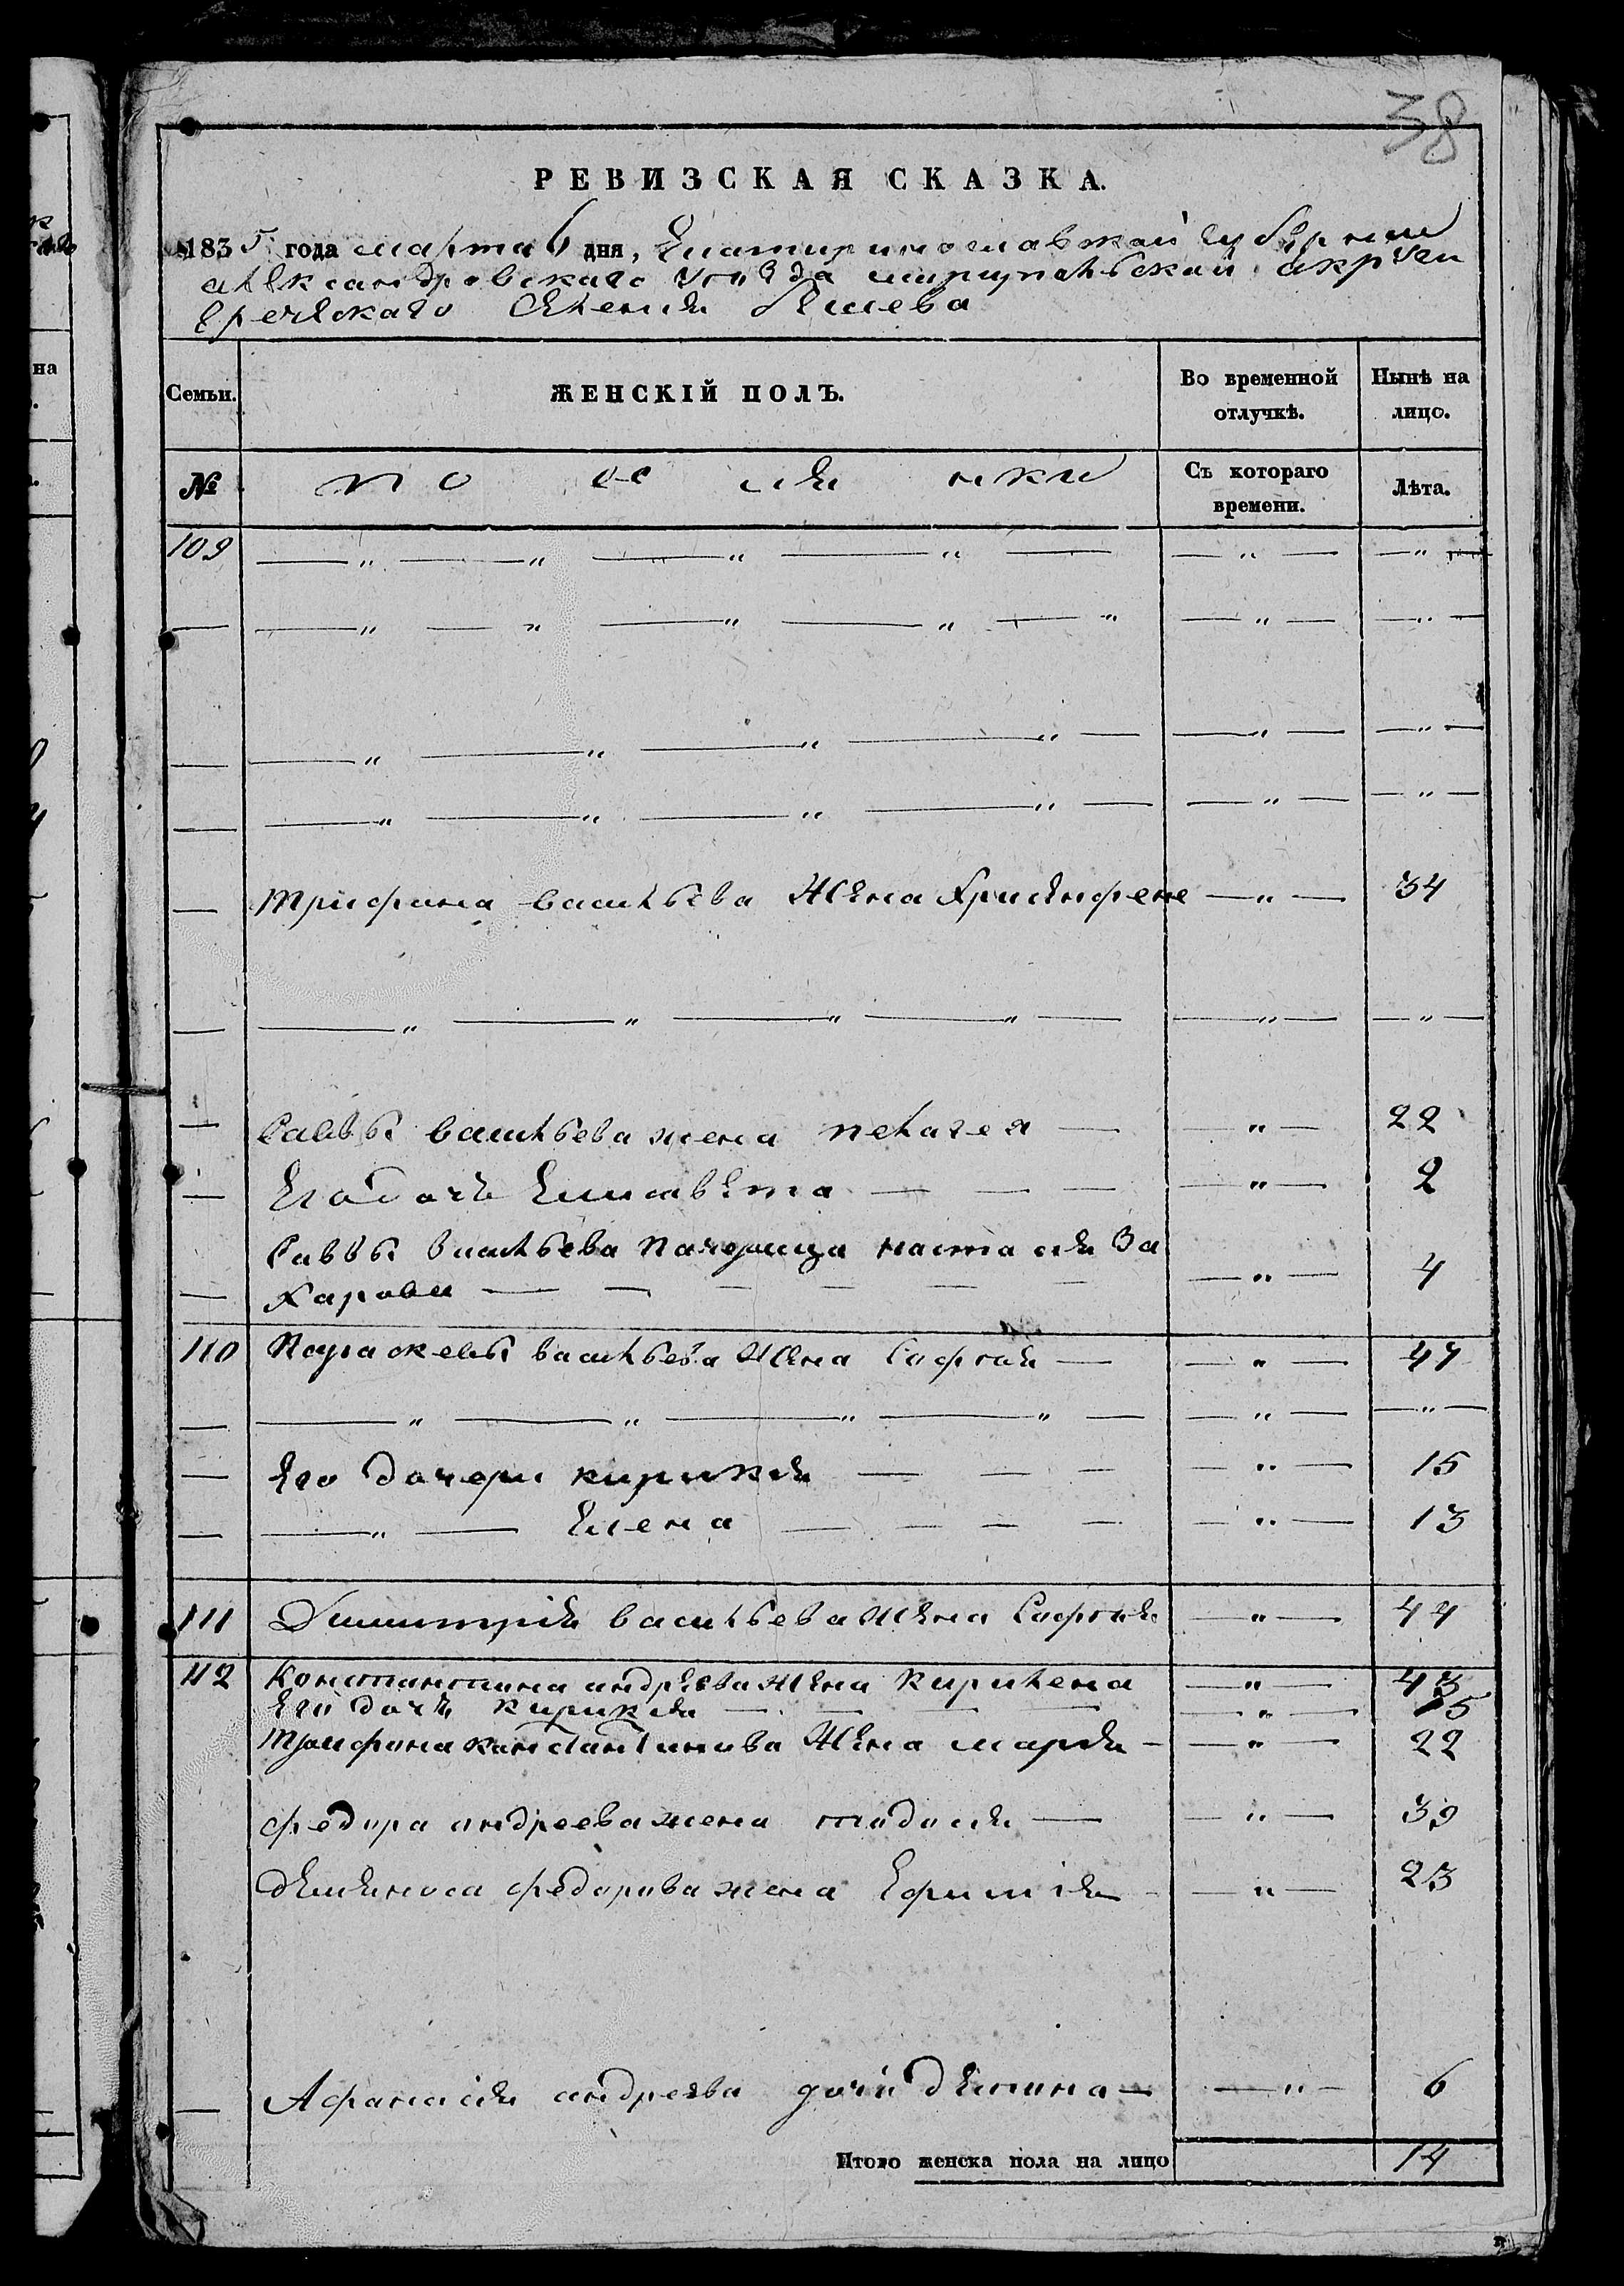 38
РЕВИЗСКАЯ СКАЗКА.
1835 года марта 6 дня, Екатиринославской губернии
алексанδровскаго уѣзда мариупольской округи
греческаго селения Бешева
Семьи. ЖЕНСКІЙ ПОЛЪ. Во временной отлучкѣ. Нынѣ на лицо.
№ поселянки Съ котораго времени. Лѣта.
109 — „ — „ — „ — „ — — „ — — „ —
— — „ — „ — „ — „ — „ — „ — — „ —
— — „ — „ — „ — „ — — „ — — „ —
— — „ — „ — „ — „ — — „ — — „ —
— Трифона васильева жена — „ — 34
— — „ — „ — „ — „ — — „ — — „ —
— Саввы васильева жена пелагея — — „ — 22
— Его дочь Елисавета — — — — „ — 2
— Саввы васильева падчерица настасия За
харова — — — — — — — „ — 4
110 васильева жена София — — „ — 47
— — „ — „ — „ — „ — — „ — — „ —
— Его дочери кирикия — — — — „ — 15
— — „ — Елена — — — — — „ — 13
111 Димитрия васильева жена София — „ — 44
112 Константина андреева жена — „ — 43
Его дочь кирикия — — — — — „ — 15
Трифона константинова жена мария — — „ — 22
федора андреева жена тодосия — — „ — 39
федорова жена Ефимия — — „ — 23
— Афанасия андреева дочь — — „ — 6
Итого женска пола на лицо 14